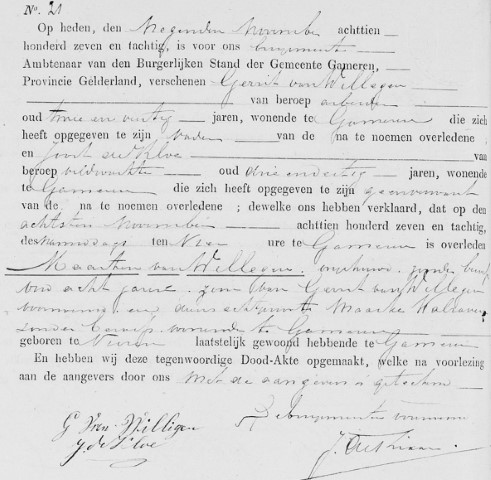 No. 21
Op heden, den negenden November achttien
honderd zeven en tachtig, is voor ons burgemeester
Ambtenaar van den Burgerlijken Stand der Gemeente Gameren,
Provincie Gelderland, verschenen Gerrit van Willegen
van beroep arbeider
oud twee en veertig jaren, wonende te Gameren die zich
heeft opgegeven te zijn vader van de na te noemen overledene;
en Joost de Kloe van
beroep veldwachter oud drie en dertig jaren, wonende
te Gameren die zich heeft opgegeven te zijn
van de na te noemen overledene; dewelke ons hebben verklaard, dat op den
achtsten November achttien honderd zeven en tachtig,
des namiddags ten Vier ure te Gameren is overleden
Maarten van Willegen, ongehuwd, zonder
oud acht jaren, zoon van Gerrit van Willegen
voornoemd, en diens echtgenoote Maaike
zonder beroep wonende te Gameren
geboren te laatstelijk gewoond hebbende te Gameren
En hebben wij deze tegenwoordige Dood-Akte opgemaakt, welke na voorlezing
aan de aangevers door ons met de aangevers is geteekend
G van Willigen De burgemeester voornoemd
J. de Kloe